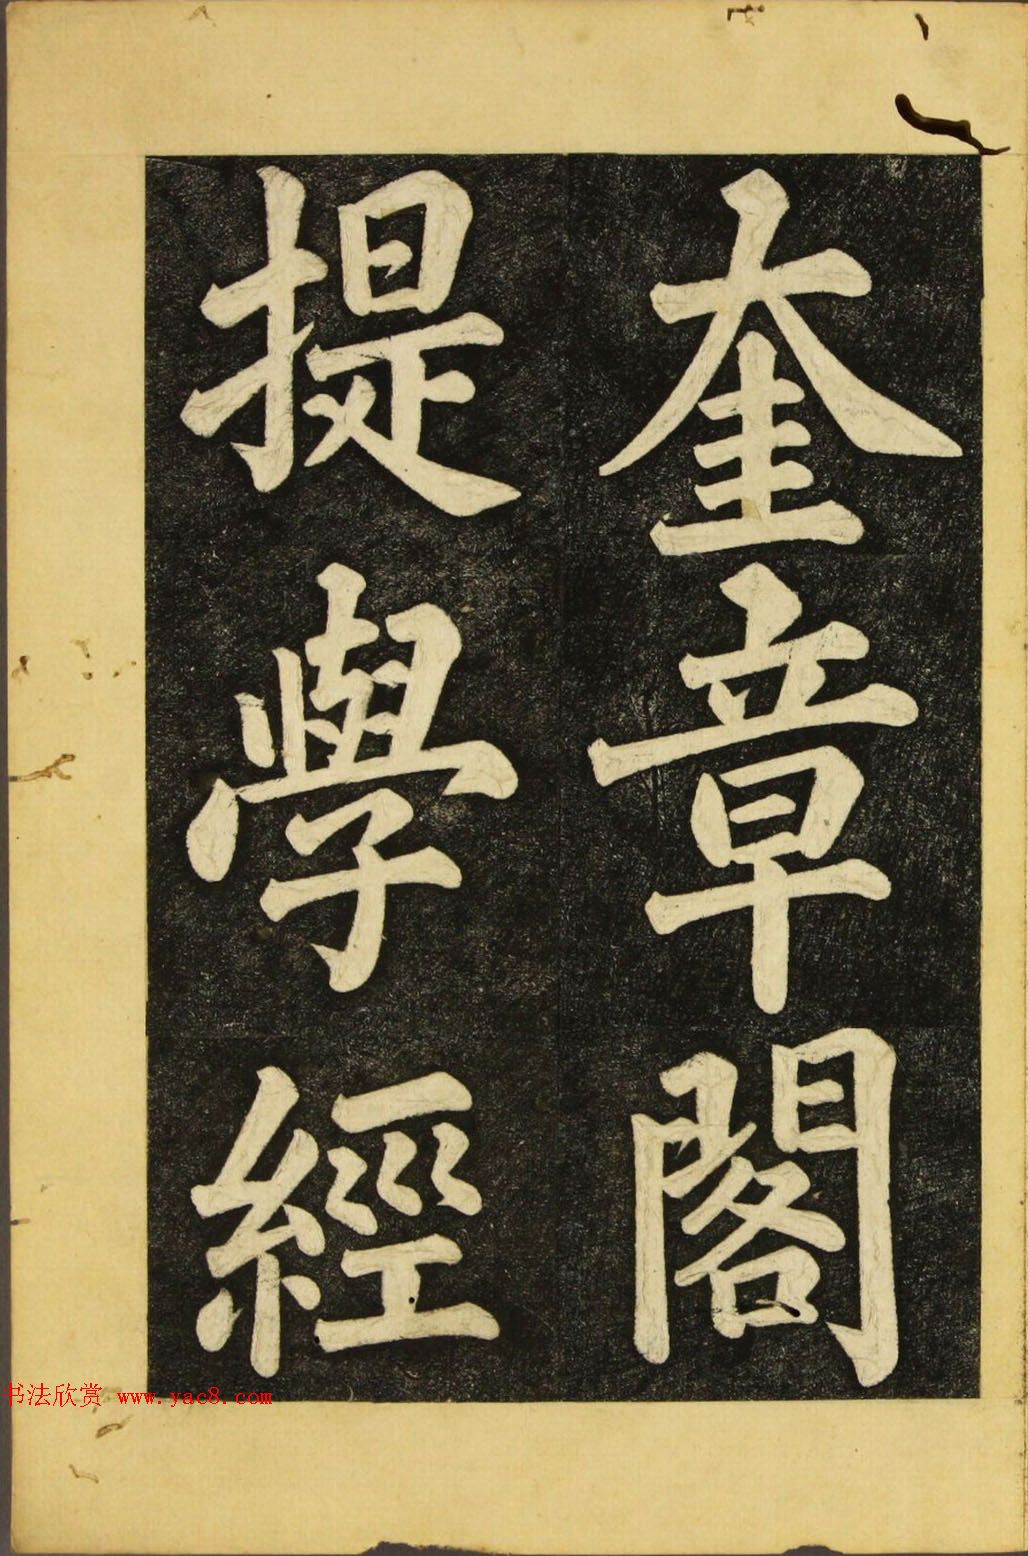 奎章閣
提學經
书法欣赏 www.yac8.com